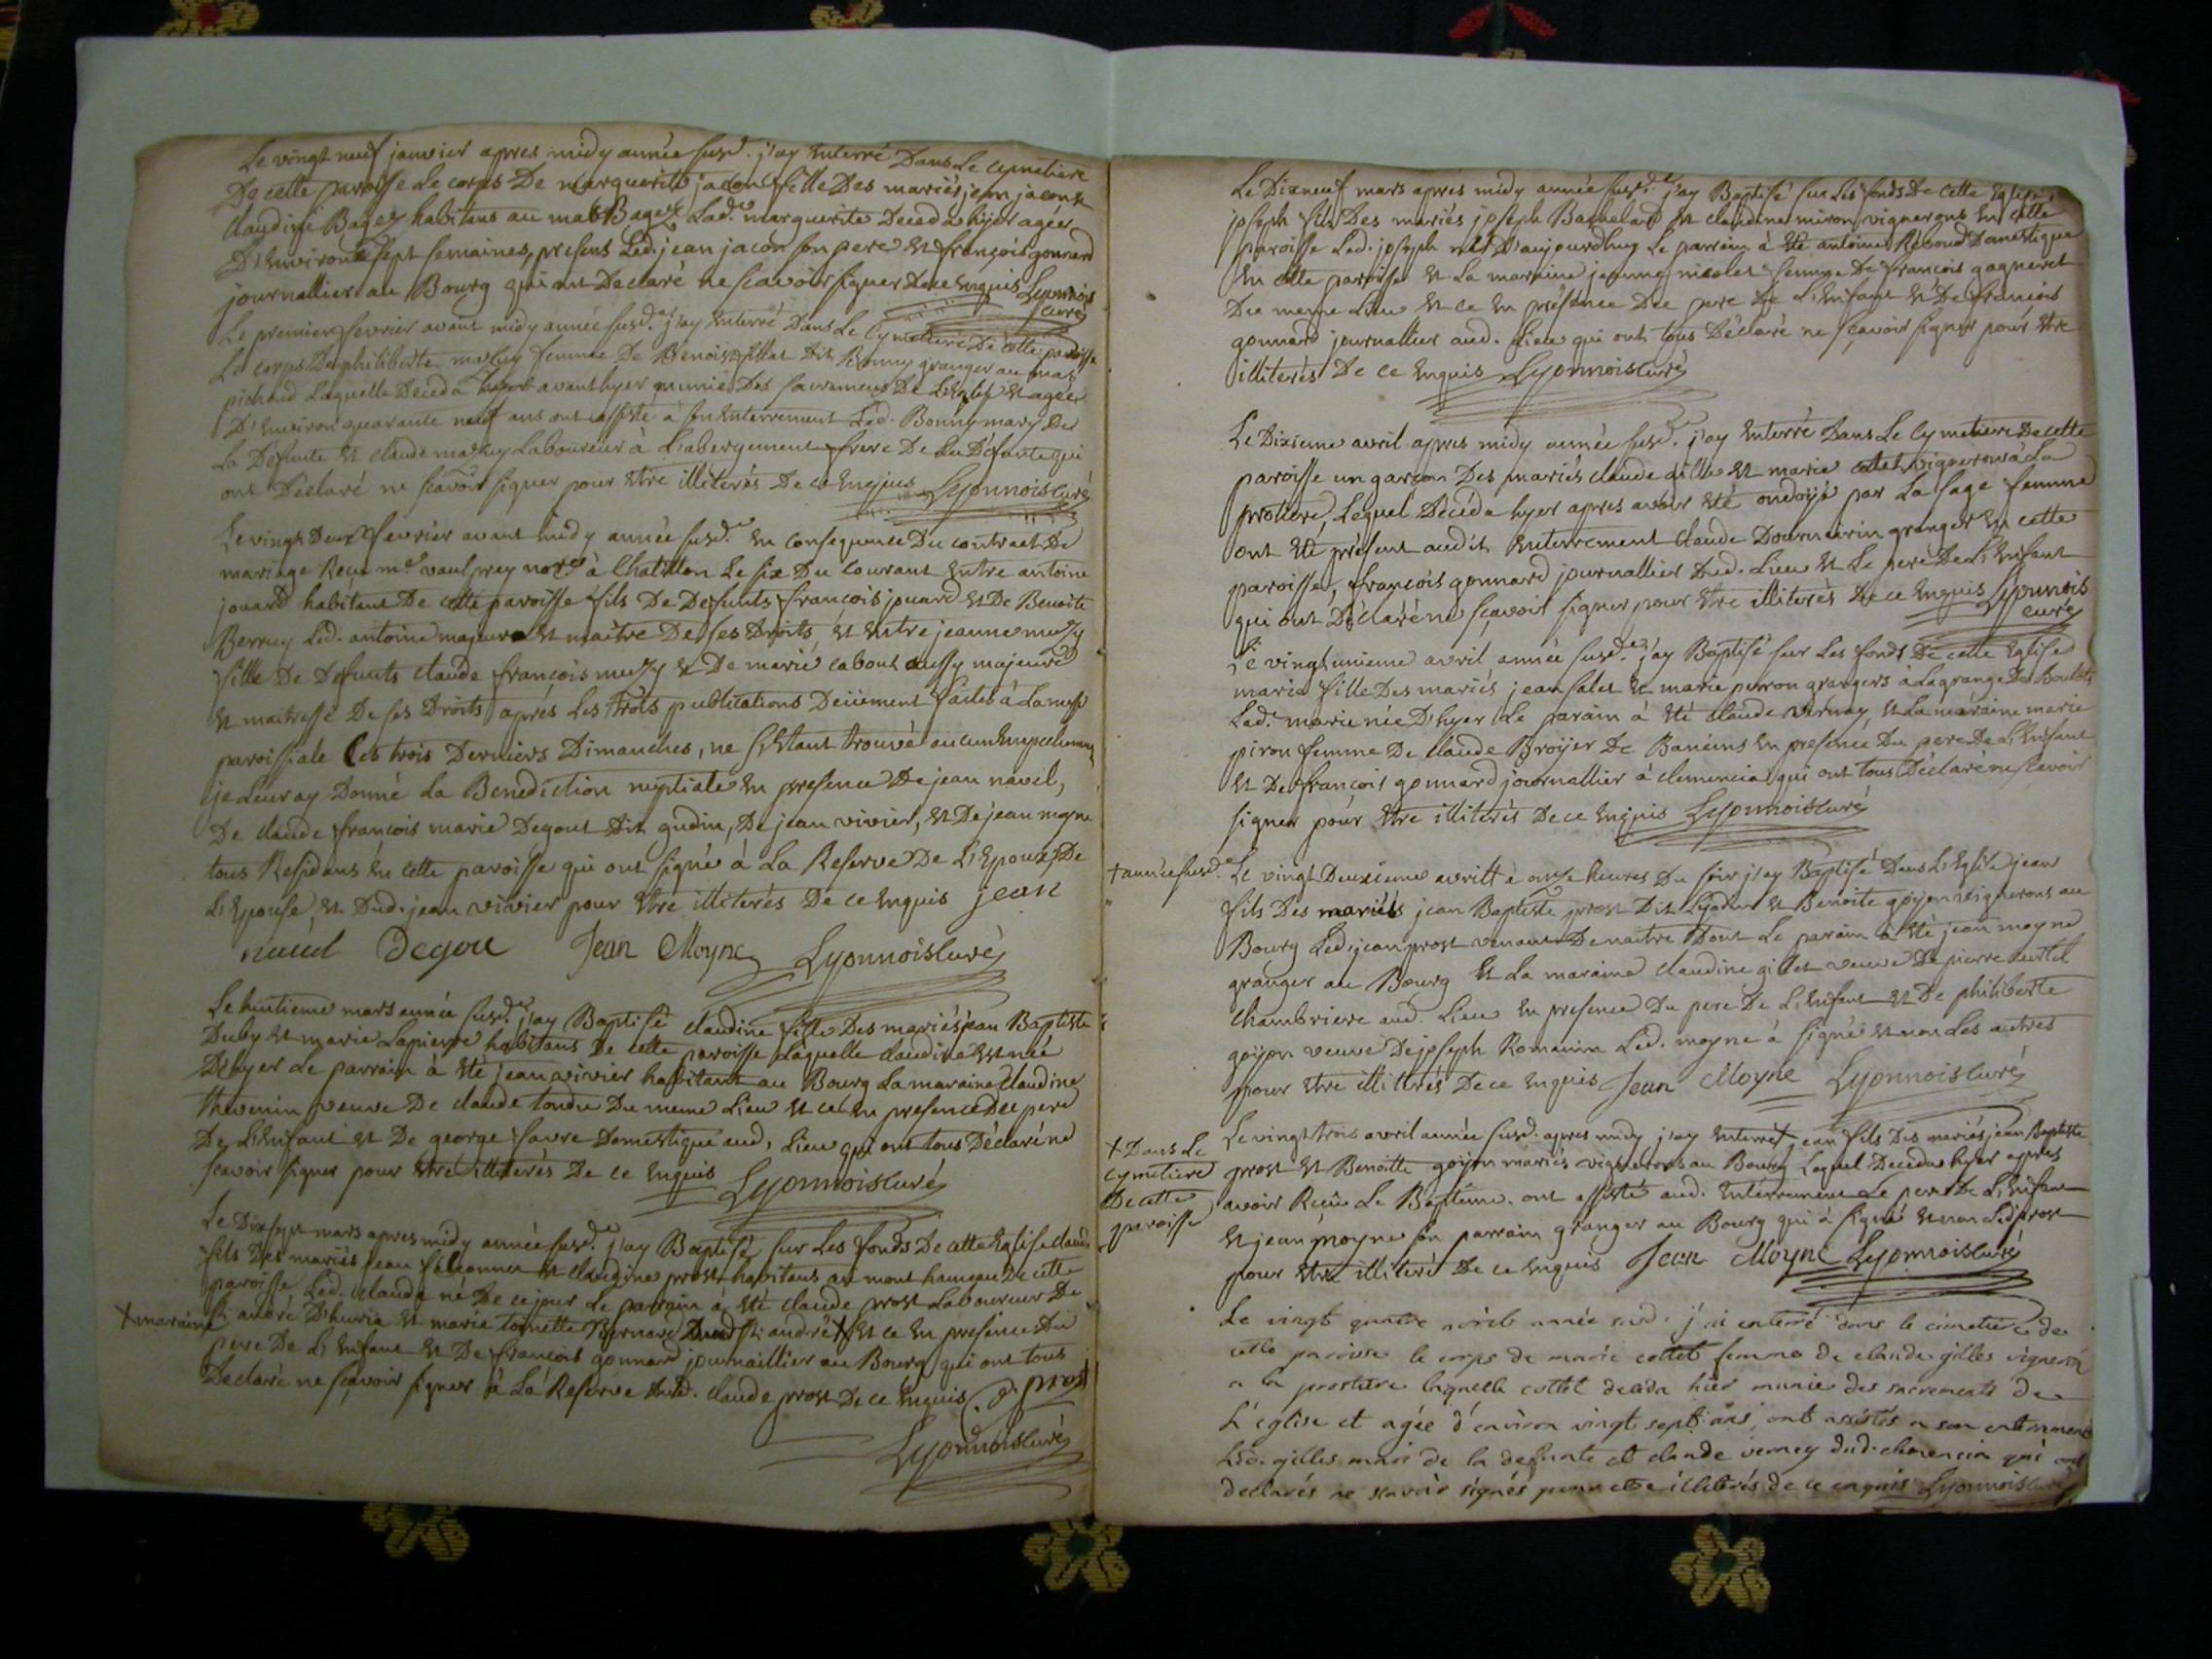 Le vingt neuf janvier apres midy année susd.e j'ay Enterré Dans Le cymetiere
De cette paroisse Le corps De marguerite jacon fille Des mariés jean jacon et
claudine Bagey habitans au mas Bagey Lad.e marguerite Deceda hyer agée
D'Environ sept semaines, presens Led. jean jacon son pere Et françois gonnard
journallier au Bourg qui ont Declaré ne scavoir signer De ce Enquis Lyonnois
curé
Le premier fevrier avant midy année susd.e j'ay Enterré Dans Le Cymetiere De cette paroisse
Le corps De philiberte femme De Benoist Dit Bonny granger au mas
pichoud Laquelle Deceda avant hyer munie Des sacremens De L'Eglise Et agée
D'Environ quarante neuf ans ont assisté à son Enterrement Led. Bonny mary De
La Defunte Et claude Laboureur à L'abergement frere De La Defunte qui
ont Déclaré ne scavoir signer pour Etre illiterés De ce Enquis Lyonnois curé
Le vingt Deux fevrier avant midy année susd.e En consequence Du contract De
mariage Reçu m.e vaulprey no.re à Chatillon Le six Du courant Entre antoine
jouard habitant De cette paroisse fils De Defunts françois jouard Et De Benoite
Berruy Led. antoine majeur Et maitre De ses Droits, Et Entre jeanne muzy
fille De Defunts claude françois muzy Et De marie cabout aussy majeure
Et maitresse De ses Droits après Les trois publications Deüement faites à La messe
paroissiale Les trois Derniers Dimanches, ne s'Etant trouvé aucun Empechement
je Leur ay Donné La Benediction nuptiale En presence De jean navel,
De claude françois marie Degout Dit gudin, De jean vivier, Et De jean moyne
tous Residans En cette paroisse qui ont signé à La Reserve De L'Epoux, De
L'Epouse Et Dud. jean vivier pour Etre illiterés De ce Enquis jean
navel Degou Jean Moyne Lyonnois curé
Le huitieme mars année susd.e j'ay Baptisé claudine fille Des mariés jean Baptiste
Duby Et marie Lapierre habitans De cette paroisse Laquelle claudine Est née
D'hyer Le parrain à Eté jean vivier habitant au Bourg La maraine claudine
thevenin veuve De claude tondu Du meme Lieu Et ce En presence Du pere
De L'Enfant Et De george favre Domestique aud. Lieu qui ont tous Déclaré ne
scavoir signer pour Etre illiterés De ce Enquis Lyonnois curé
Le Dix sept mars apres midy année susd.e j'ay Baptisé sur Les fonds De cette Eglise claude
fils Des mariés jean falconnet Et claudine prost habitans au mont hameau De cette
paroisse, Led. claude né De ce jour Le parrain à Eté claude prost Laboureur De
+ maraine
St andré D'huria Et marie tomette Bernard Dud. St. andré + Et ce En presence Du
pere De L'Enfant Et De françois gonnard journaillier au Bourg qui ont tous
Declaré ne scavoir signer à La Reserve Dud. claude prost De ce Enquis C. prost
Lyonnois curé
Le Dixneuf mars après midy année susd.e j'ay Baptisé sur Les fonds De cette Eglise
joseph fils Des mariés joseph Bachelard Et claudine miron vignerons En cette
paroisse Led. joseph né D'aujourdhuy Le parrain à Eté antoine Reboud Domestique
En cette paroisse Et La marraine jeanne nicolet femme De françois gagneret
Du meme Lieu Et ce En présence Du pere De L'Enfant Et De françois
gonnard journallier aud. Lieu qui ont tous Déclaré ne scavoir signer pour Etre
illiterés De ce Enquis Lyonnois curé
Le Dixieme avril apres midy année susd.e j'ay Enterré Dans Le Cymetiere De cette
paroisse un garçon Des mariés claude gille Et marie cottet vignerons à La
protiere, Lequel Deceda hyer apres avoir Eté ondoyé par La sage femme
ont Eté présent audit Enterrement claude Dournairin granger En cette
paroisse, françois gonnard journallier Aud. Lieu Et Le pere De L'Enfant
qui ont Déclaré ne sçavoir signer pour Etre illiterés De ce Enquis Lyonnois
curé
Le vingt unieme avril année susd.e j'ay Baptisé sur Les fonds De cette Eglise
marie fille Des mariés jean salet Et marie perron grangers à La grange De
Lad.e marie née D'hyer Le parain à Eté claude vernay, Et La maraine marie
piron femme De claude Broyer De Banéins En presence Du pere De L'Enfant
Et De françois gonnard journallier à clemencia qui ont tous Déclaré ne scavoir
signer pour Etre illiterés De ce Enquis Lyonnois curé
+ année susd.e
Le vingt Deuxieme avrill + à onze heures Du soir j'ay Baptisé Dans L'Eglise jean
fils Des mariés jean Baptiste prost Dit Et Benoite goyon vignerons au
Bourg Led. jean prost venant De naitre Dont Le parain à Eté jean moyne
granger au Bourg Et La maraine claudine gillet veuve De pierre
chambriere aud. Lieu En presence Du pere De L'Enfant Et De philiberte
goyon veuve De joseph Romanin Led. moyne à signé Et non Les autres
pour Etre illiterés De ce Enquis Jean Moyne Lyonnois curé
Le vingt trois avril année susd. apres midy j'ay Enterré + jean fils Des mariés jean Baptiste
+ Dans Le
cymetiere
De cette
paroisse
prost Et Benoitte goyon mariés vignerons au Bourg Lequel Deceda hyer apres
avoir Reçu Le Baptême. ont assisté aud. Enterrement Le pere De L'Enfant
Et jean moyne son parrain granger au Bourg qui à signé Et non Led. prost
pour Etre illiteré De ce Enquis Jean Moyne Lyonnois curé
Le vingt quatre avril année susd. j'ai enterré dans le cimetiere de
cette paroisse le corps de marie cottet femme de claude gilles vigneron
a la prostiere laquelle cottet deceda hier munie des sacrements de
L'eglise et agée d'environ vingt sept ans, ont assistés a son enterrement
Led. gilles mari de la defunte et claude verney dud. clemencia qui ont
declarés ne scavoir signés pour etre illiterés de ce enquis Lyonnois curé